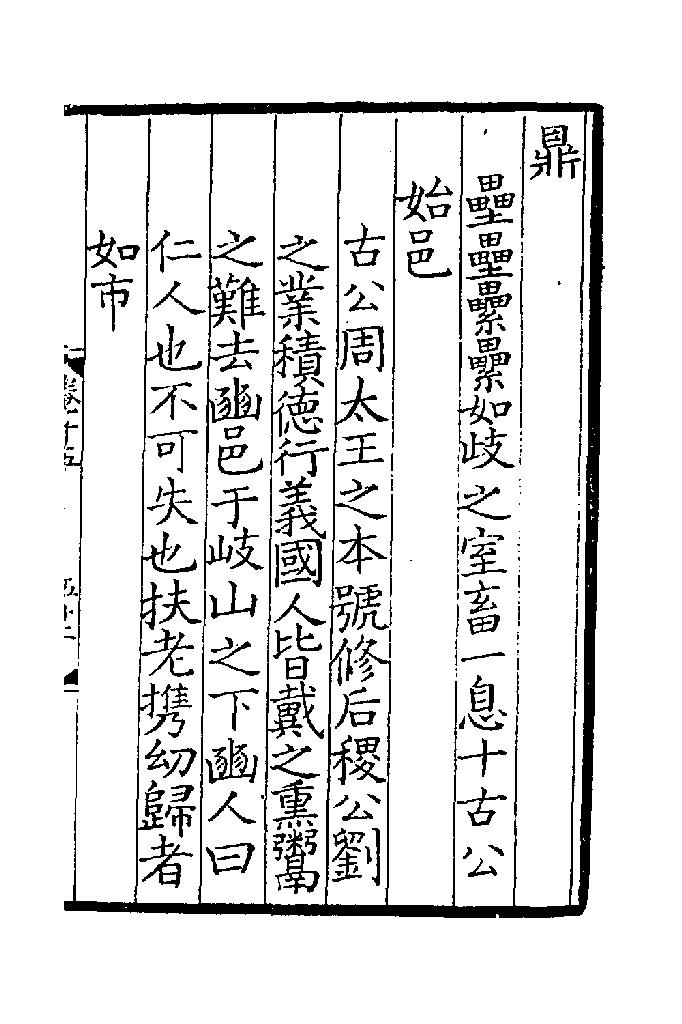 鼎
壘壘纍纍如歧之室畜一息十古公
始邑
古公周太王之本號修后稷公劉
之業積德行義國人皆戴之熏鬻
之難去豳邑于岐山之下豳人曰
仁人也不可失也扶老攜幼歸者
如市
卷十五